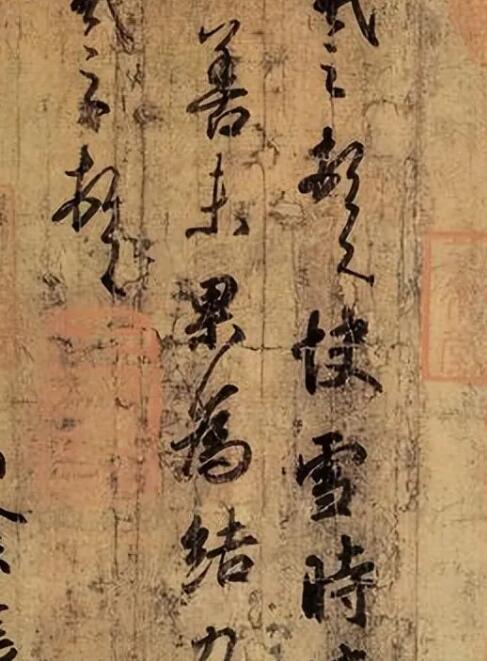 羲之頓首快雪時
善未果為結力
羲之頓首